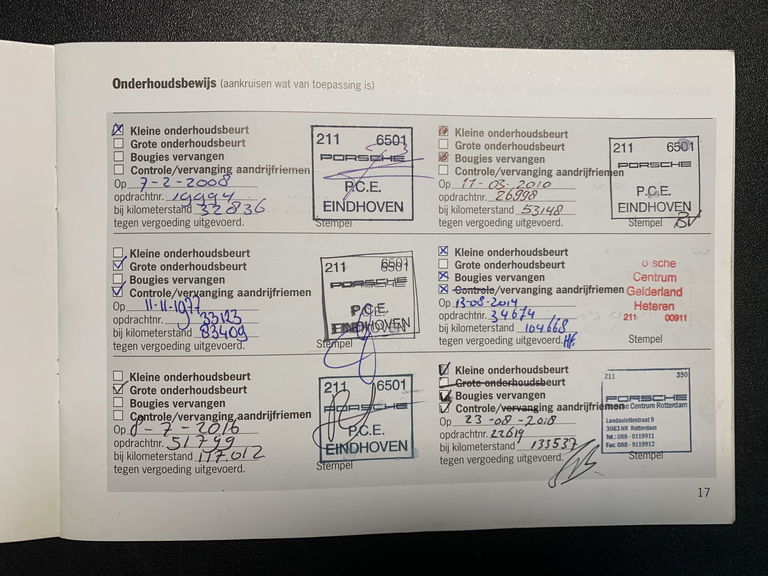 Onderhoudsbewijs (aankruisen wat van toepassing is)
Kleine onderhoudsbeurt
Grote onderhoudsbeurt
Bougies vervangen
Controle/vervanging aandrijfriemen
Op 7-2-2008
opdrachtnr. 19994
bij kilometerstand 32836
tegen vergoeding uitgevoerd.
211 6501
PORSCHE
P.C.E.
EINDHOVEN
Stempel
Kleine onderhoudsbeurt
Grote onderhoudsbeurt
Bougies vervangen
Controle/vervanging aandrijfriemen
Op 11-03-2010
opdrachtnr. 26998
bij kilometerstand 53148
tegen vergoeding uitgevoerd.
211 6501
PORSCHE
P.C.E.
EINDHOVEN
Stempel
Kleine onderhoudsbeurt
Grote onderhoudsbeurt
Bougies vervangen
Controle/vervanging aandrijfriemen
Op 11-11-1977
opdrachtnr. 33123
bij kilometerstand 83409
tegen vergoeding uitgevoerd.
211 6501
PORSCHE
P.C.E.
EINDHOVEN
Stempel
Kleine onderhoudsbeurt
Grote onderhoudsbeurt
Bougies vervangen
Controle/vervanging aandrijfriemen
Op 13-08-2014
opdrachtnr. 34674
bij kilometerstand 104668
tegen vergoeding uitgevoerd.
sche
Centrum
Gelderland
Heteren
211 00911
Stempel
Kleine onderhoudsbeurt
Grote onderhoudsbeurt
Bougies vervangen
Controle/vervanging aandrijfriemen
Op 8-7-2016
opdrachtnr. 51799
bij kilometerstand 117.012
tegen vergoeding uitgevoerd.
211 6501
PORSCHE
P.C.E.
EINDHOVEN
Stempel
Kleine onderhoudsbeurt
Grote onderhoudsbeurt
Bougies vervangen
Controle/vervanging aandrijfriemen
Op 23-08-2018
opdrachtnr. 22619
bij kilometerstand 133537
tegen vergoeding uitgevoerd.
211 350
PORSCHE
Centrum Rotterdam
3063 NR Rotterdam
Tel.: 088 - 9119911
Fax: 088 - 9119912
Stempel
17